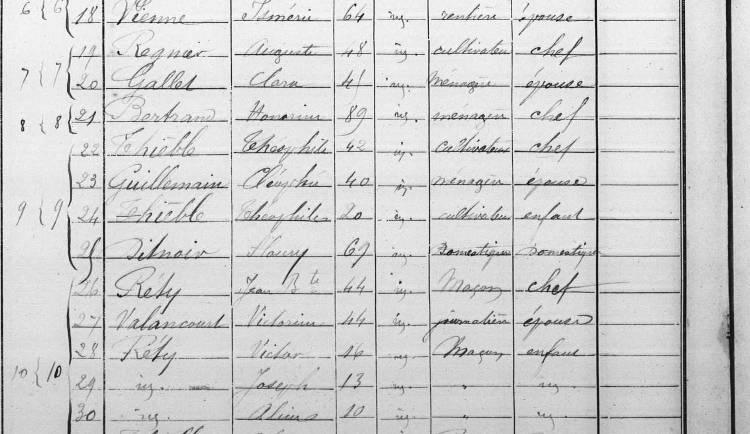 6 { 6 18 Vienne 64 rentière épouse
19 Regnier Auguste 48 cultivateur chef
7 { 7 20 Gallet Clara 41 ménagère épouse
8 { 8 21 Bertrand Honorine 89 ménagère chef
22 Thièble Théophile 42 cultivateur chef
23 Guillemain 40 ménagère épouse
9 { 9 24 Thièble Théophile 20 cultivateur enfant
25 Fleury 69 Domestique Domestique
26 Réty Jean Bte 44 Maçon chef
27 Valancourt Victorine 44 journalière épouse
28 Réty Victor 16 Maçon enfant
10 { 10 29 Joseph 13 "
30 10 "